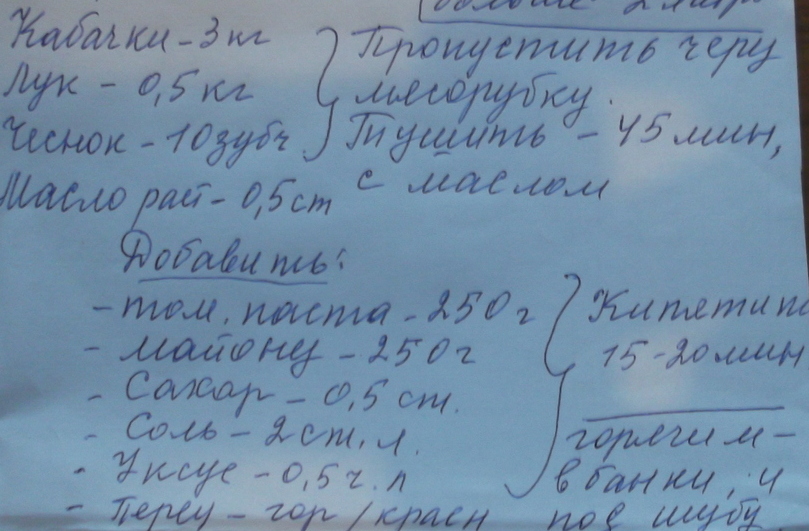 больше 2 литр
Кабачки - 3 кг } Пропустить через
Лук - 0,5 кг мясорубку.
Чеснок - 10 зубч Тушить - 45 мин,
Масло раст - 0,5 ст с маслом
Добавить:
- том. паста - 250 г } Кипятить
- майонез - 250 г 15-20 мин
- Сахар - 0,5 ст.
- Соль - 2 ст. л. горячим -
- Уксус - 0,5 ч. л в банки, и
- Перец - гор / красн под шубу